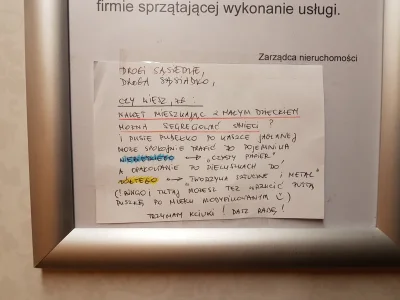 firmie sprzątającej wykonanie usługi.
Zarządca nieruchomości
DROGI SĄSIEDZIE,
DROGA SĄSIADKO,
CZY WIESZ, ŻE:
NAWET MIESZKAJĄC Z MAŁYM DZIECKIEM
MOŻNA SEGREGOWAĆ ŚMIECI?
I PUSTE PUDEŁKO PO KASZCE JAGLANEJ
MOŻE SPOKOJNIE TRAFIĆ DO POJEMNIKA
NIEBIESKIEGO → "CZYSTY PAPIER"
A OPAKOWANIE PO PIELUSZKACH DO
ŻÓŁTEGO → "TWORZYWA SZTUCZNE I METAL"
(BINGO! TUTAJ MOŻESZ TEŻ WRZUCIĆ PUSTĄ
PUSZKĘ PO MLEKU MODYFIKOWANYM :)
TRZYMAM KCIUKI! DASZ RADĘ!